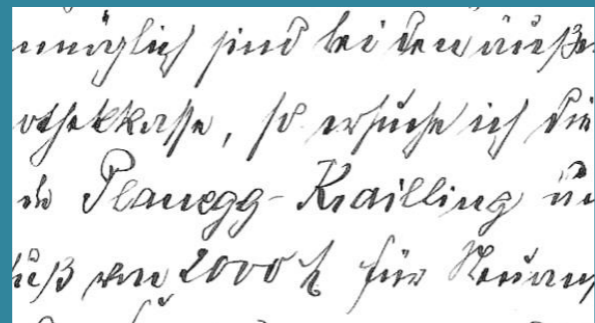 nmöglich sind bei den äuße
othekkasse, so ersuche ich die
de Planegg-Krailling un
huß von 2000 M für Neuans